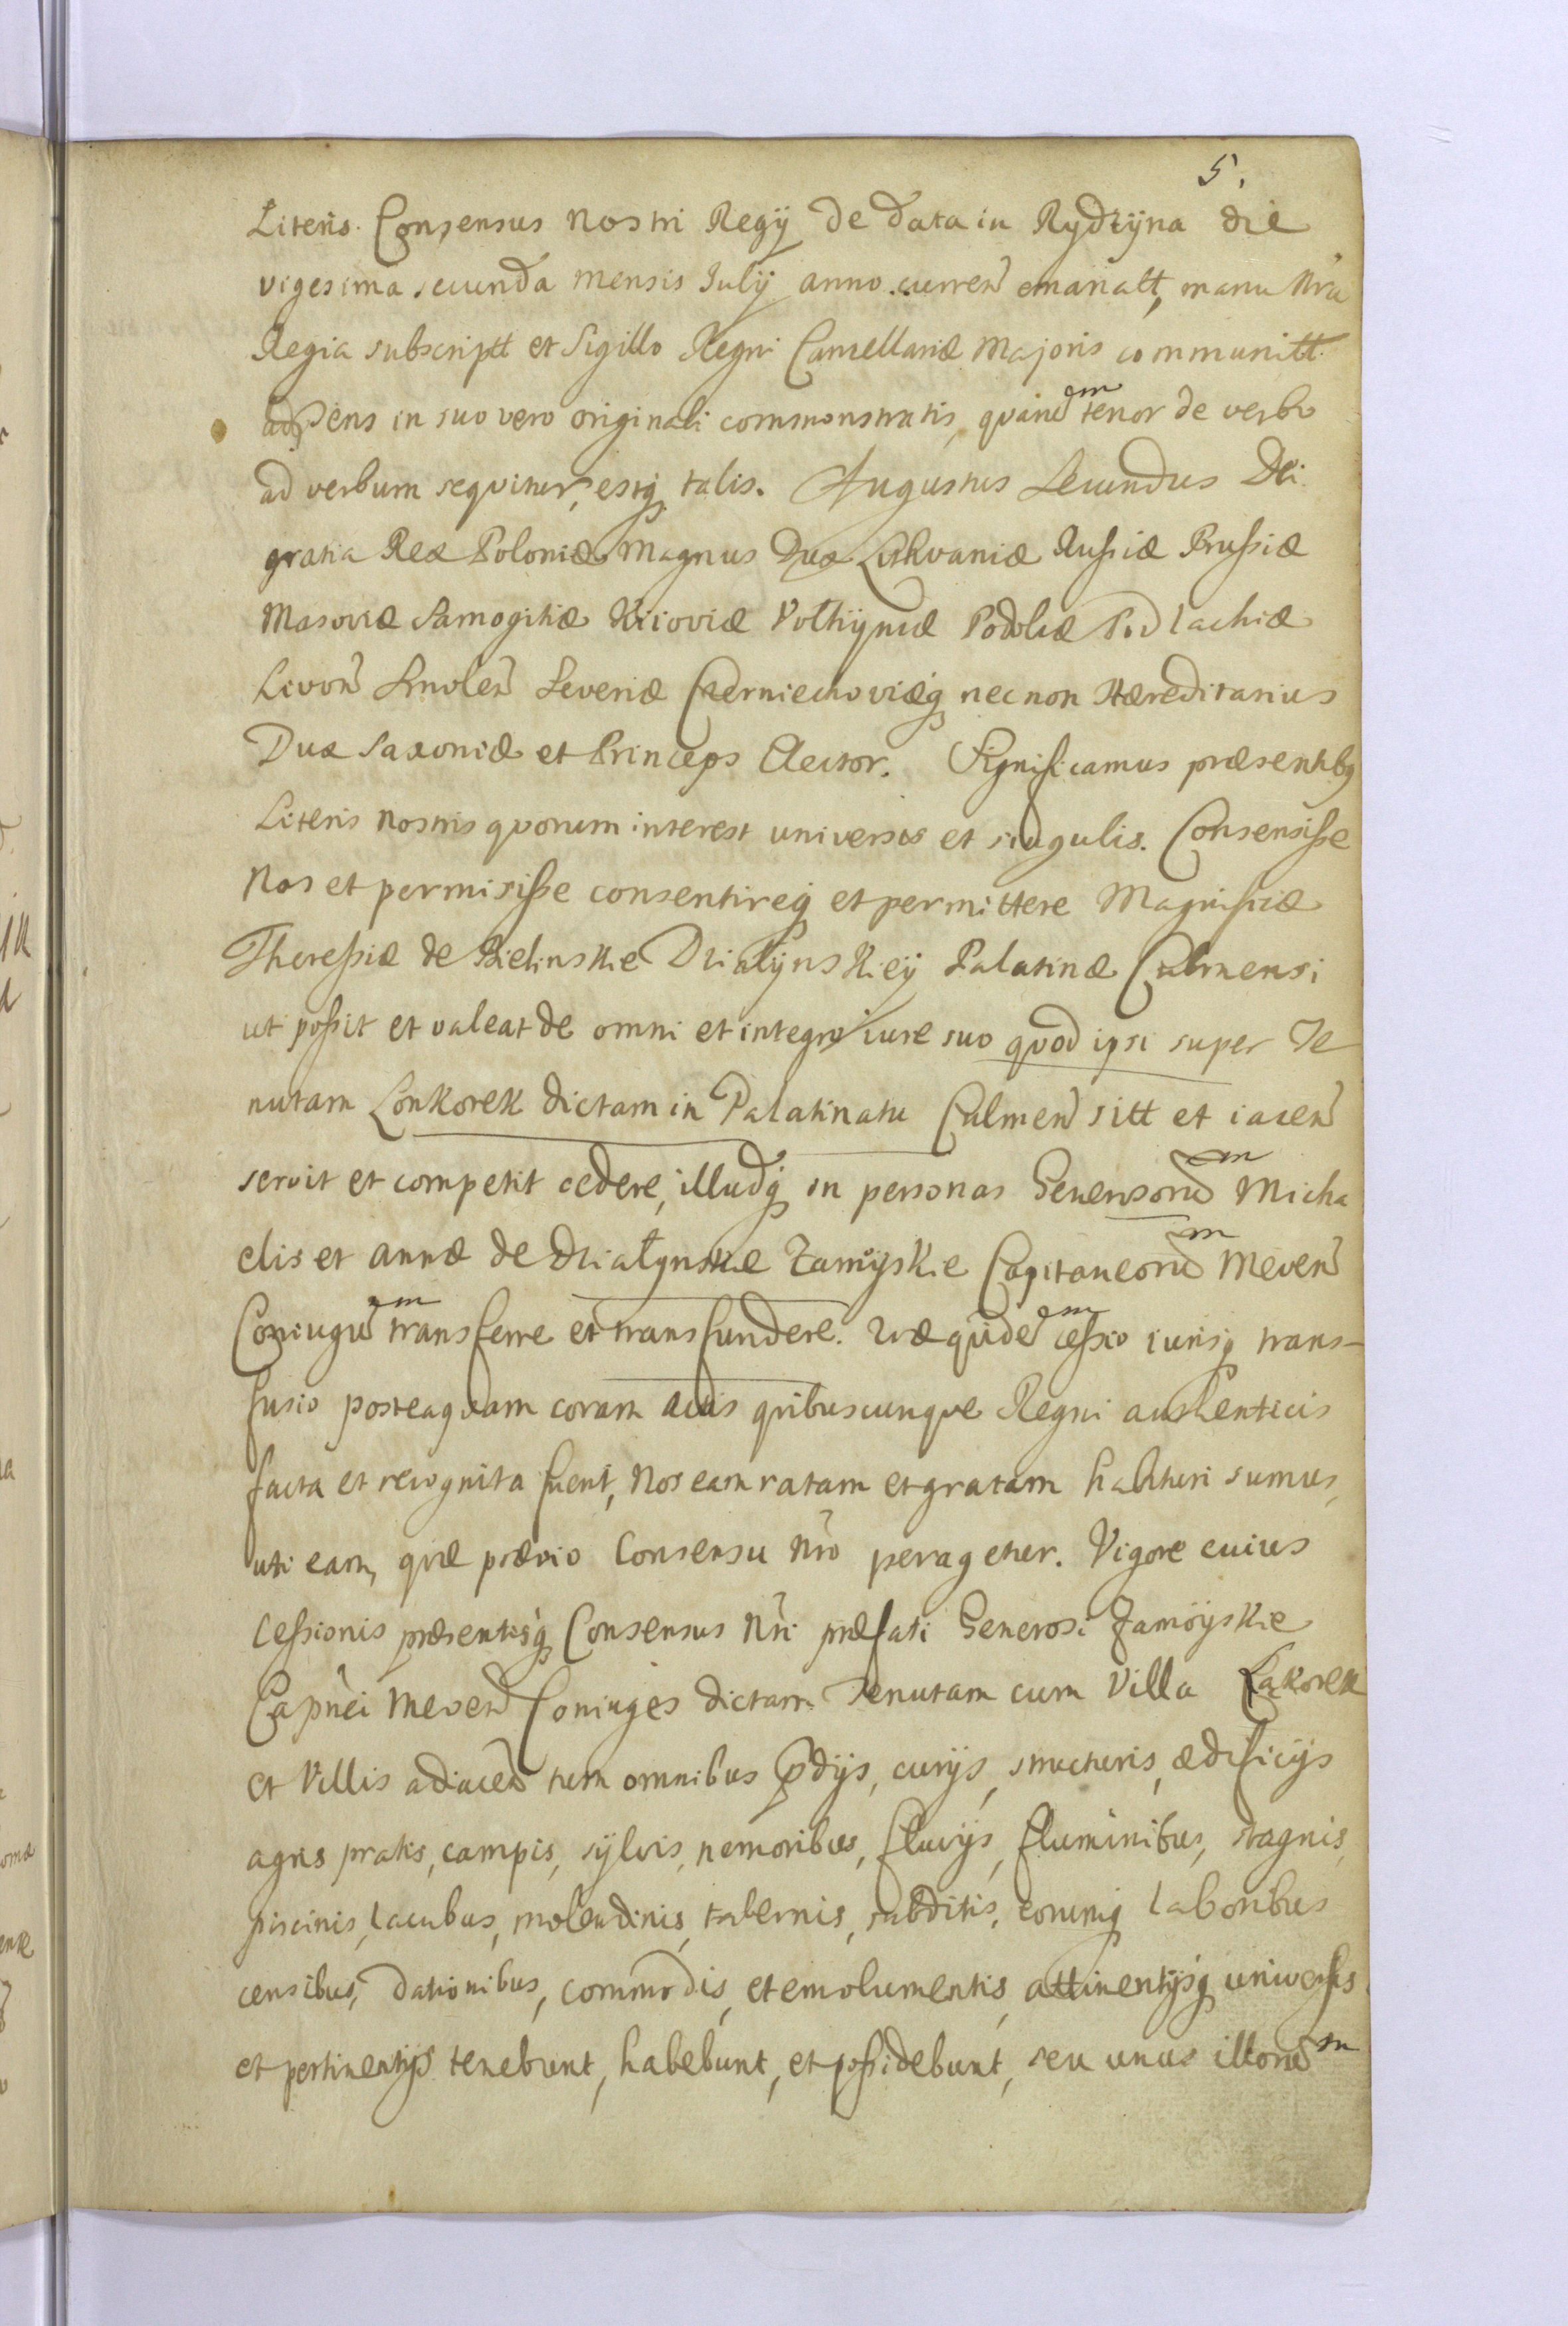 5.
Literis Consensus nostri Regÿ de data in Rydzÿna die
vigesima secunda mensis Julÿ anno curreñ emanatt, manu nrã
Regia subscriptt et Sigillo Regni Cancellariæ Majoris communitt.
ad pñs in suo vero originali commonstratis, quarum tenor de verbo
ad verbum sequitur, estq talis. Augustus Secundus Dei
gratia Rex Poloniæ Magnus Dux Lithvaniæ Russiæ Prussiæ
Masoviæ Samogitiæ Kiioviæ Volhÿniæ Podoliæ Podlachiæ
Livoñ Smoleñ Severiæ Czerniechoviæq necnon Hæreditarius
Dux Saxoniæ et Princeps Elector. Significamus præsentibq
Literis nostris quorum interest universis et singulis. Consensisse
nos et permisisse consentireq et permittere Magnificæ
Theressiæ de Bielinskie Dzialÿnskieÿ Palatinæ Culmensi
ut possit et valeat de omni et integro iure suo quod ipsi super Te
nutam Lonkorek dictam in Palatinatu Culmeñ sitt et iaceñ
servit et competit cedere, illudq in personas Generosorum Micha
elis et Annæ de Dzialÿnskie Zamoÿskie Capitaneorum Meveñ
Coniugum transferre et transfundere. Quæ quidem cessio iurisq trans-
fusio posteaquam coram actis quibuscunque Regni authenticis
facta et recognita fuerit, nos eam ratam et gratam habituri sumus,
uti eam, quæ prævio Consensu nro peragetur. Vigore cuius
cessionis præsentisq Consensus nri præfati Generosi Zamoÿskie
Capnei Meveñ Coniuges dictam Tenutam cum Villa Łakorek
et Villis adiaceñ tum omnibus prædÿs, curÿs, structuris, ædificÿs
agris pratis, campis, sÿlvis, nemoribus, fluvÿs, fluminibus, stagnis,
piscinis, lacubus, molendinis, tabernis, subditis, eorumq laboribus
censibus, dationibus, commodis, et emolumentis, attinentÿsq universis
et pertinentÿs tenebunt, habebunt, et possidebunt, seu unus illorum